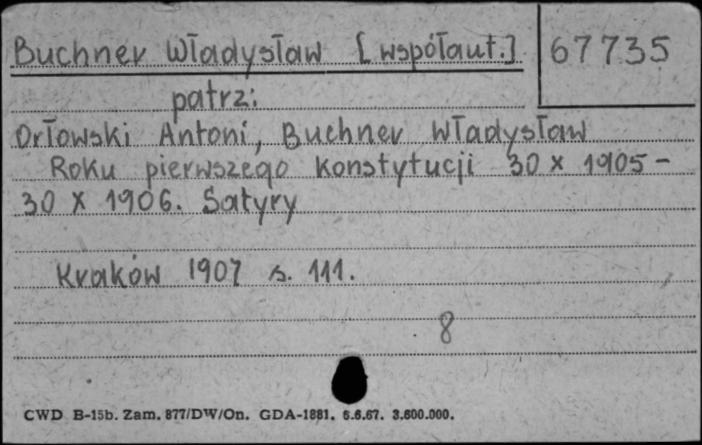 Buchner Władysław [współaut.] 67735
patrz:
Orłowski Antoni, Buchner Władysław
Roku pierwszego Konstytucji 30 X 1905 -
30 X 1906. Satyry
Kraków 1907 s. 111.
8
CWD B-15b. Zam. 877/DW/On. GDA-1881. 6.6.67. 3.600.000.